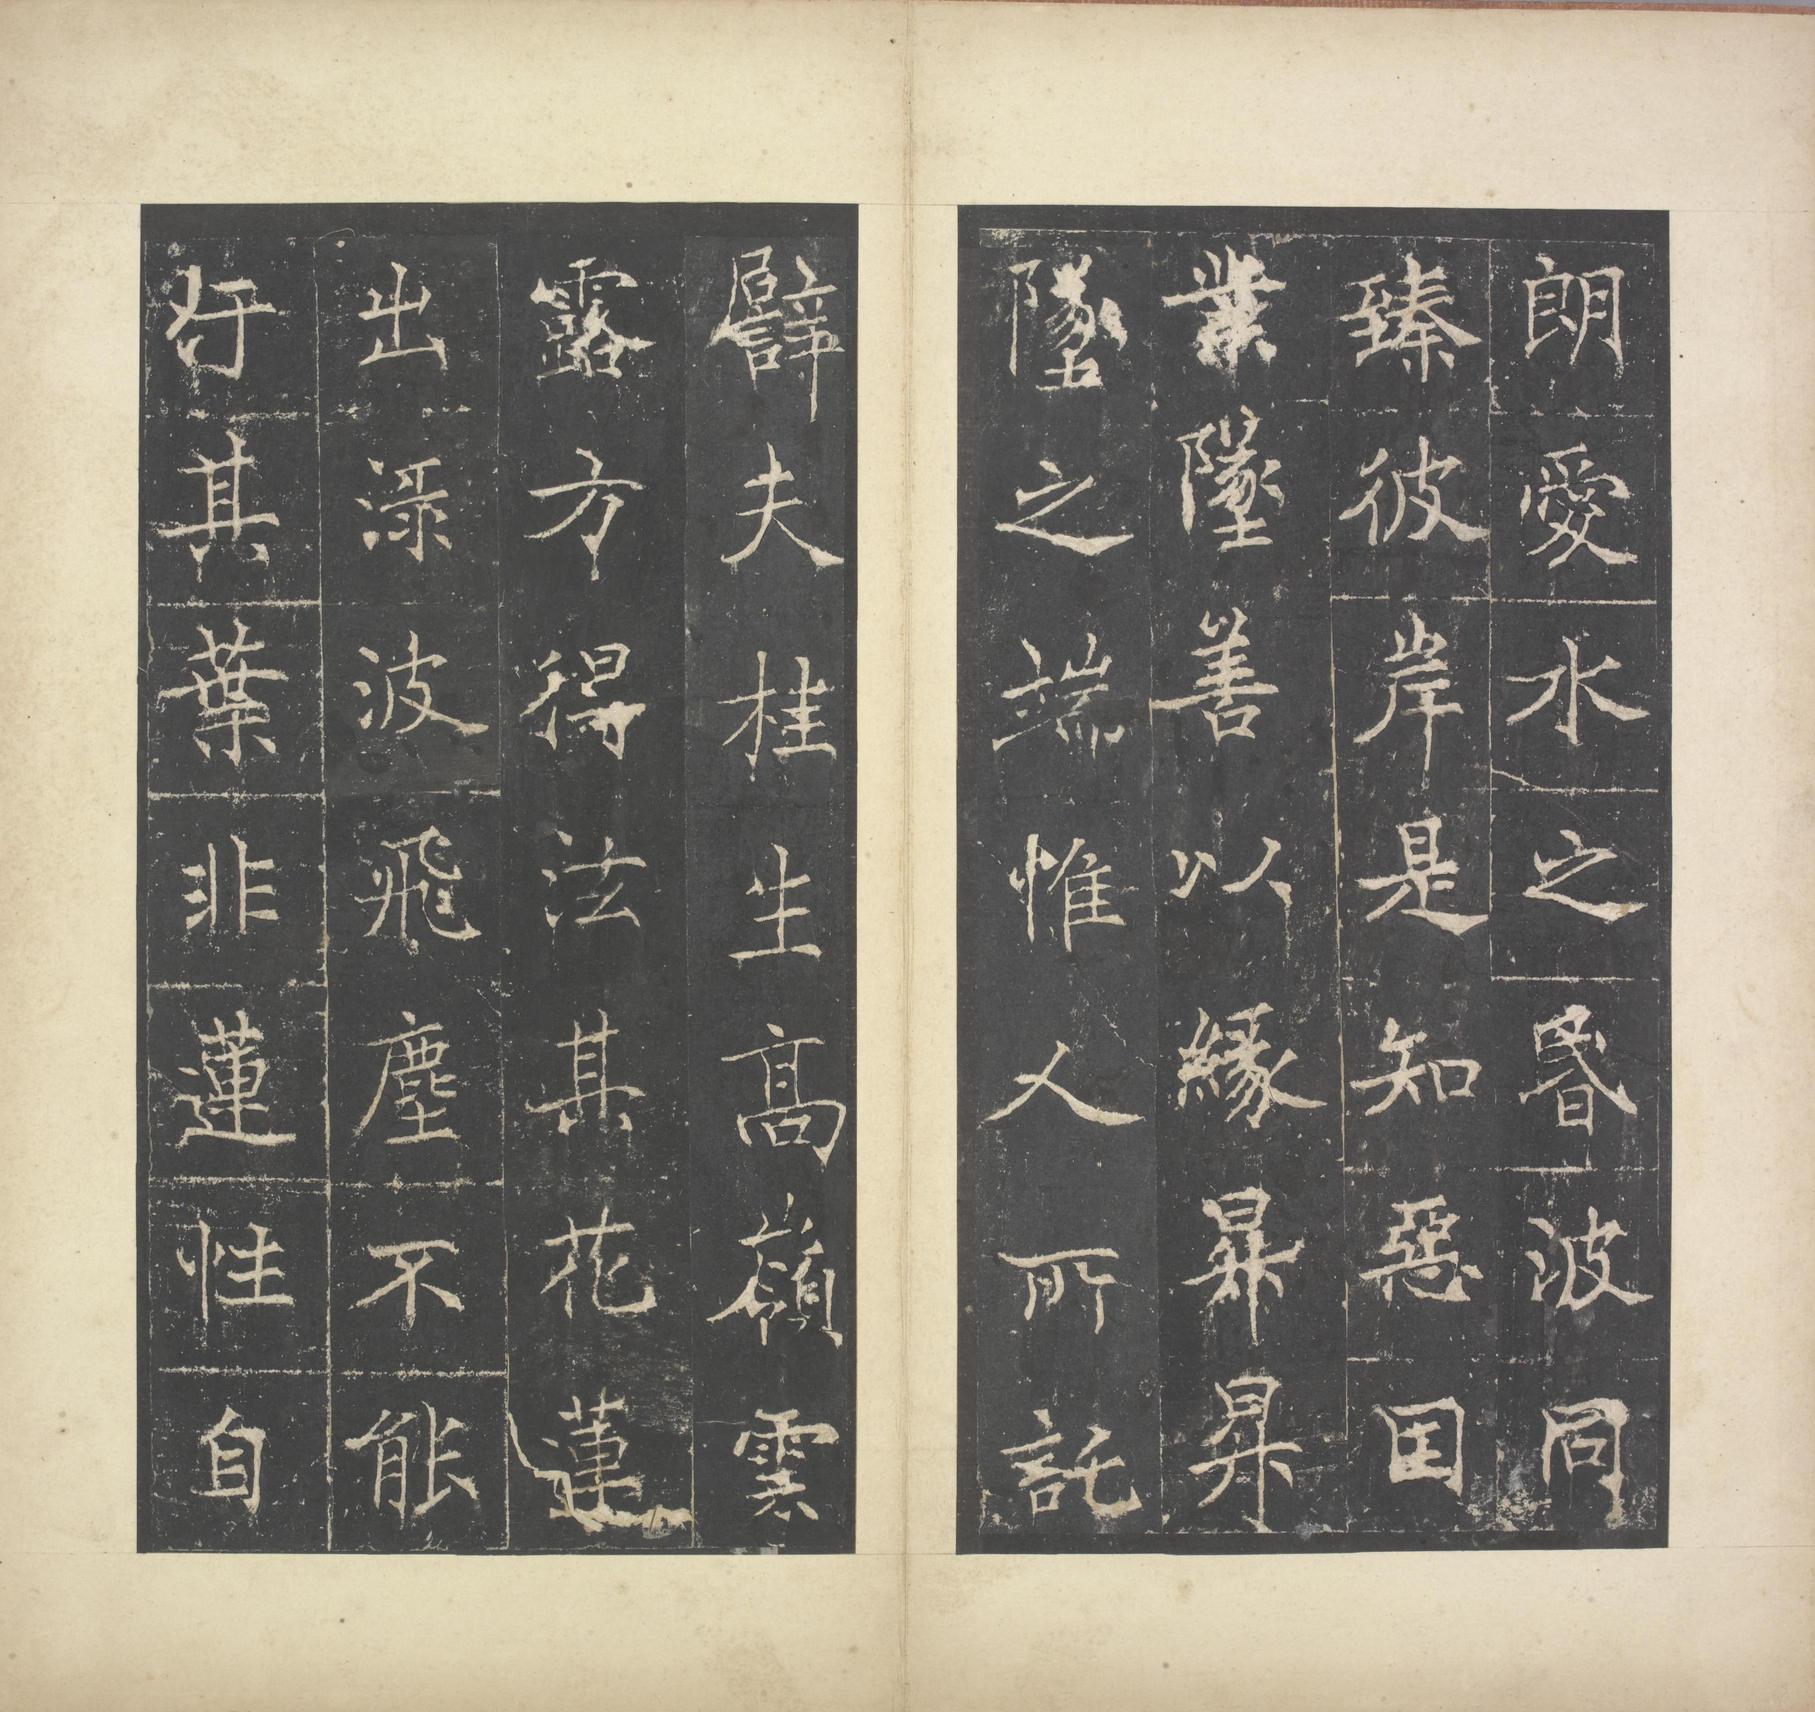 朗愛水之昬波同
臻彼岸是知惡因
業墜善以緣昇昇
墜之端惟人所託
譬夫桂生高嶺雲
露方得泫其花蓮
出淥波飛塵不能
汙其葉非蓮性自